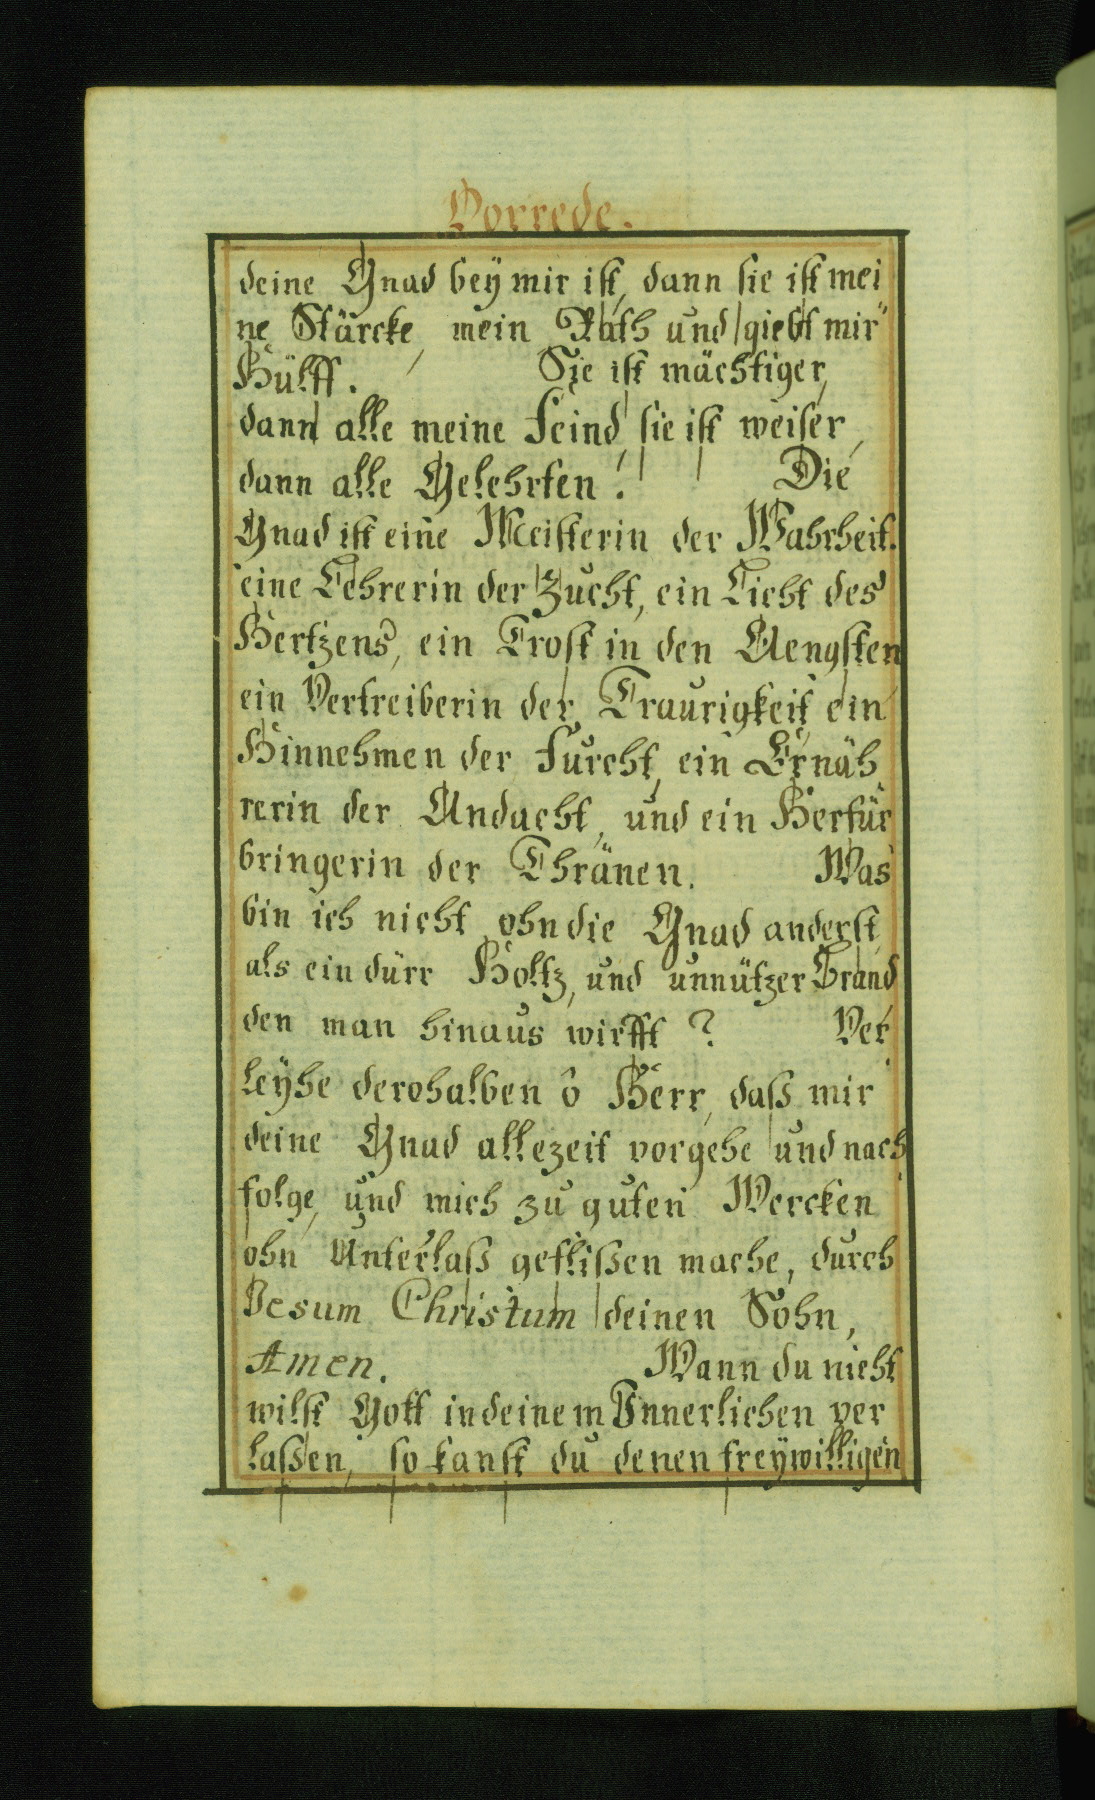 Vorrede.
deine Gnad bey mir ist, dann sie ist mei
ne Stärcke, mein Rath und giebt mir
Hülff. Sie ist mächtiger,
dann alle meine Feind, sie ist weiser,
dann alle Gelehrten! Die
Gnad ist eine Meisterin der Wahrheit.
eine Lehrerin der Zucht, ein Licht des
Hertzens, ein Trost in den Aengsten
ein Vertreiberin der Traurigkeit, ein
Hinnehmen der Furcht, ein Ernäh
rerin der Andacht, und ein Herfür
bringerin der Thränen. Was
bin ich nicht ohn die Gnad anderst,
als ein dürr Holtz, und unnützer
den man hinaus wirfft? Ver
leyhe derohalben ô Herr, daß mir
deine Gnad allezeit vorgehe und nach
folge, und mich zu guten Wercken
ohn Unterlaß geflißen mache, durch
Jesum Christum deinen Sohn,
Amen. Wann du nicht
wilst Gott in deinem Innerlichen ver
laßen, so kanst du denen freywilligen